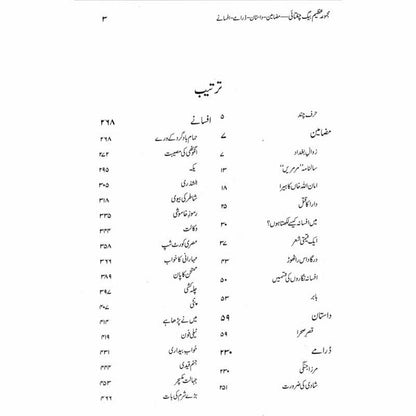 مجموعہ عظیم بیگ چغتائی — مضامین - داستان - ڈرامے - افسانے ۳
ترتیب
حرف چند ۵
مضامین ۷
زوالِ بغداد ۷
سالنامہ "سرمریں" ۱۳
امان اللہ خاں کا ہیرا ۱۸
دارا کا قتل ۲۵
میں افسانہ کیسے لکھتا ہوں؟ ۳۰
ایک قیمتی شعر ۳۷
درگا داس راٹھور ۴۳
افسانہ نگاروں کی قسمیں ۵۰
بابر ۵۳
داستان ۵۹
قصرِ صحرا ۵۹
ڈرامے ۲۳۰
مرزا جنگی ۲۳۰
شادی کی ضرورت ۲۵۱
افسانے ۲۶۸
حمام بادگرد کے ورے ۲۶۸
انگوٹھی کی مصیبت ۲۷۲
یکہ ۲۹۵
الشذری ۳۰۵
شاطر کی بیوی ۳۱۸
رموزِ خاموشی ۳۳۵
وکالت ۳۴۴
مصری کورٹ شپ ۳۵۸
مہارانی کا خواب ۳۶۶
معجون کا پان ۳۸۹
چلہ کشی ۳۹۷
پٹی ۴۰۷
میں نے پڑھا ہے ۴۱۴
ٹیلی فون ۴۱۹
خواب و بیداری ۴۳۱
جنم قیدی ۴۴۱
جہالت نکچر ۴۵۳
بڑے شرم کی بات ۴۶۶